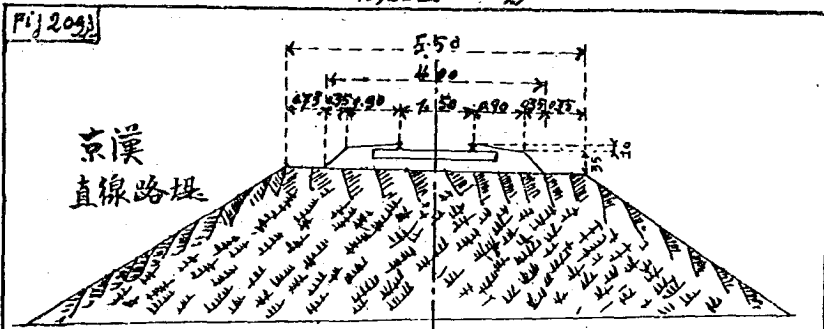 Fig 209
5.50
4.00
0.75 0.35 0.90 1.50 0.90 0.35 0.75
10
35
京漢
直線路堤